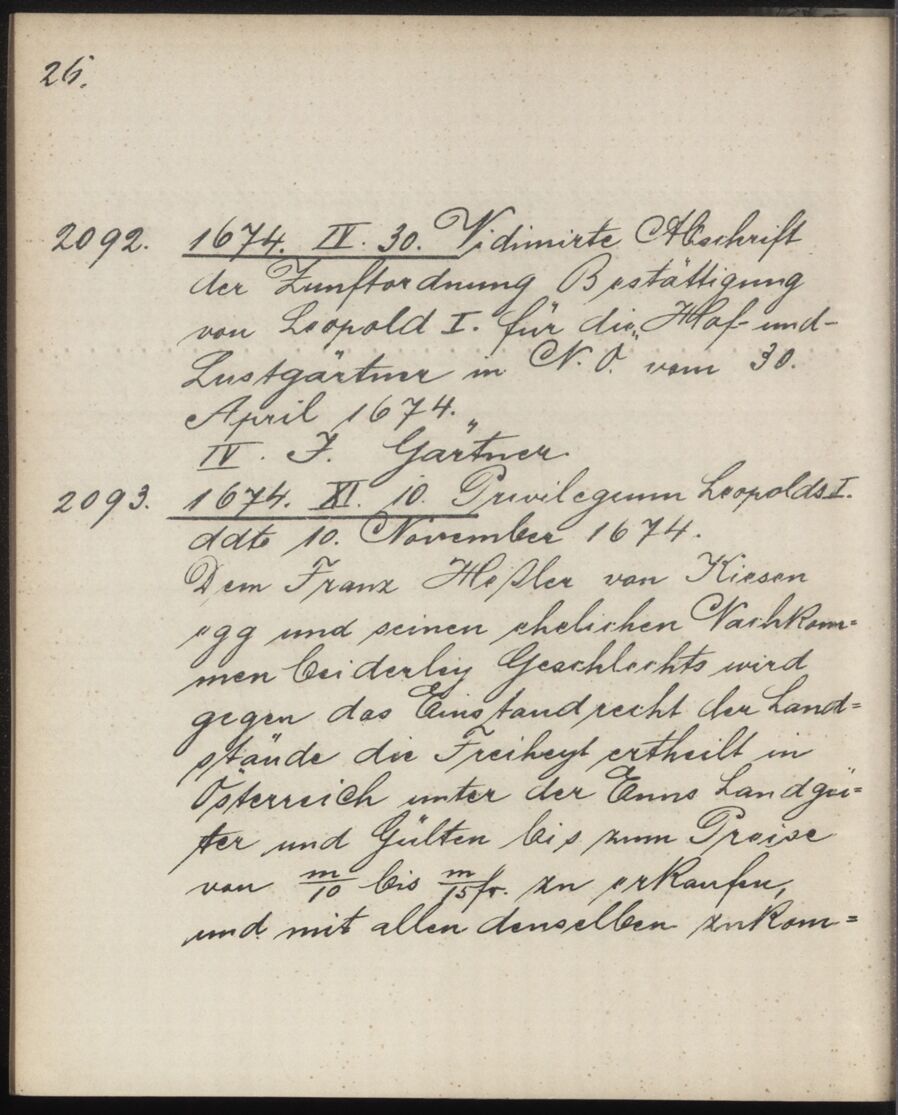 26.
2092. 1674. IV. 30. Vidimirte Abschrift
der Zunftordnung Bestättigung
von Leopold I. für die „Hof- und-
Lustgärtner in N. Ö.“ vom 30.
April 1674.
IV. F. „Gärtner.
2093. 1674. XI. 10. Privilegium Leopolds I.
ddto 10. November 1674.
Dem Franz Heßler von Kiesen
egg und seinen ehelichen Nachkom=
men beiderley Geschlechts wird
gegen das Einstandrecht der Land=
stände die Freiheyt ertheilt in
Österreich unter der Enns Landgü=
ter und Gülten bis zum Preise
von m/10 bis m/15 fr. zu erkaufen,
und mit allen denselben zukom=